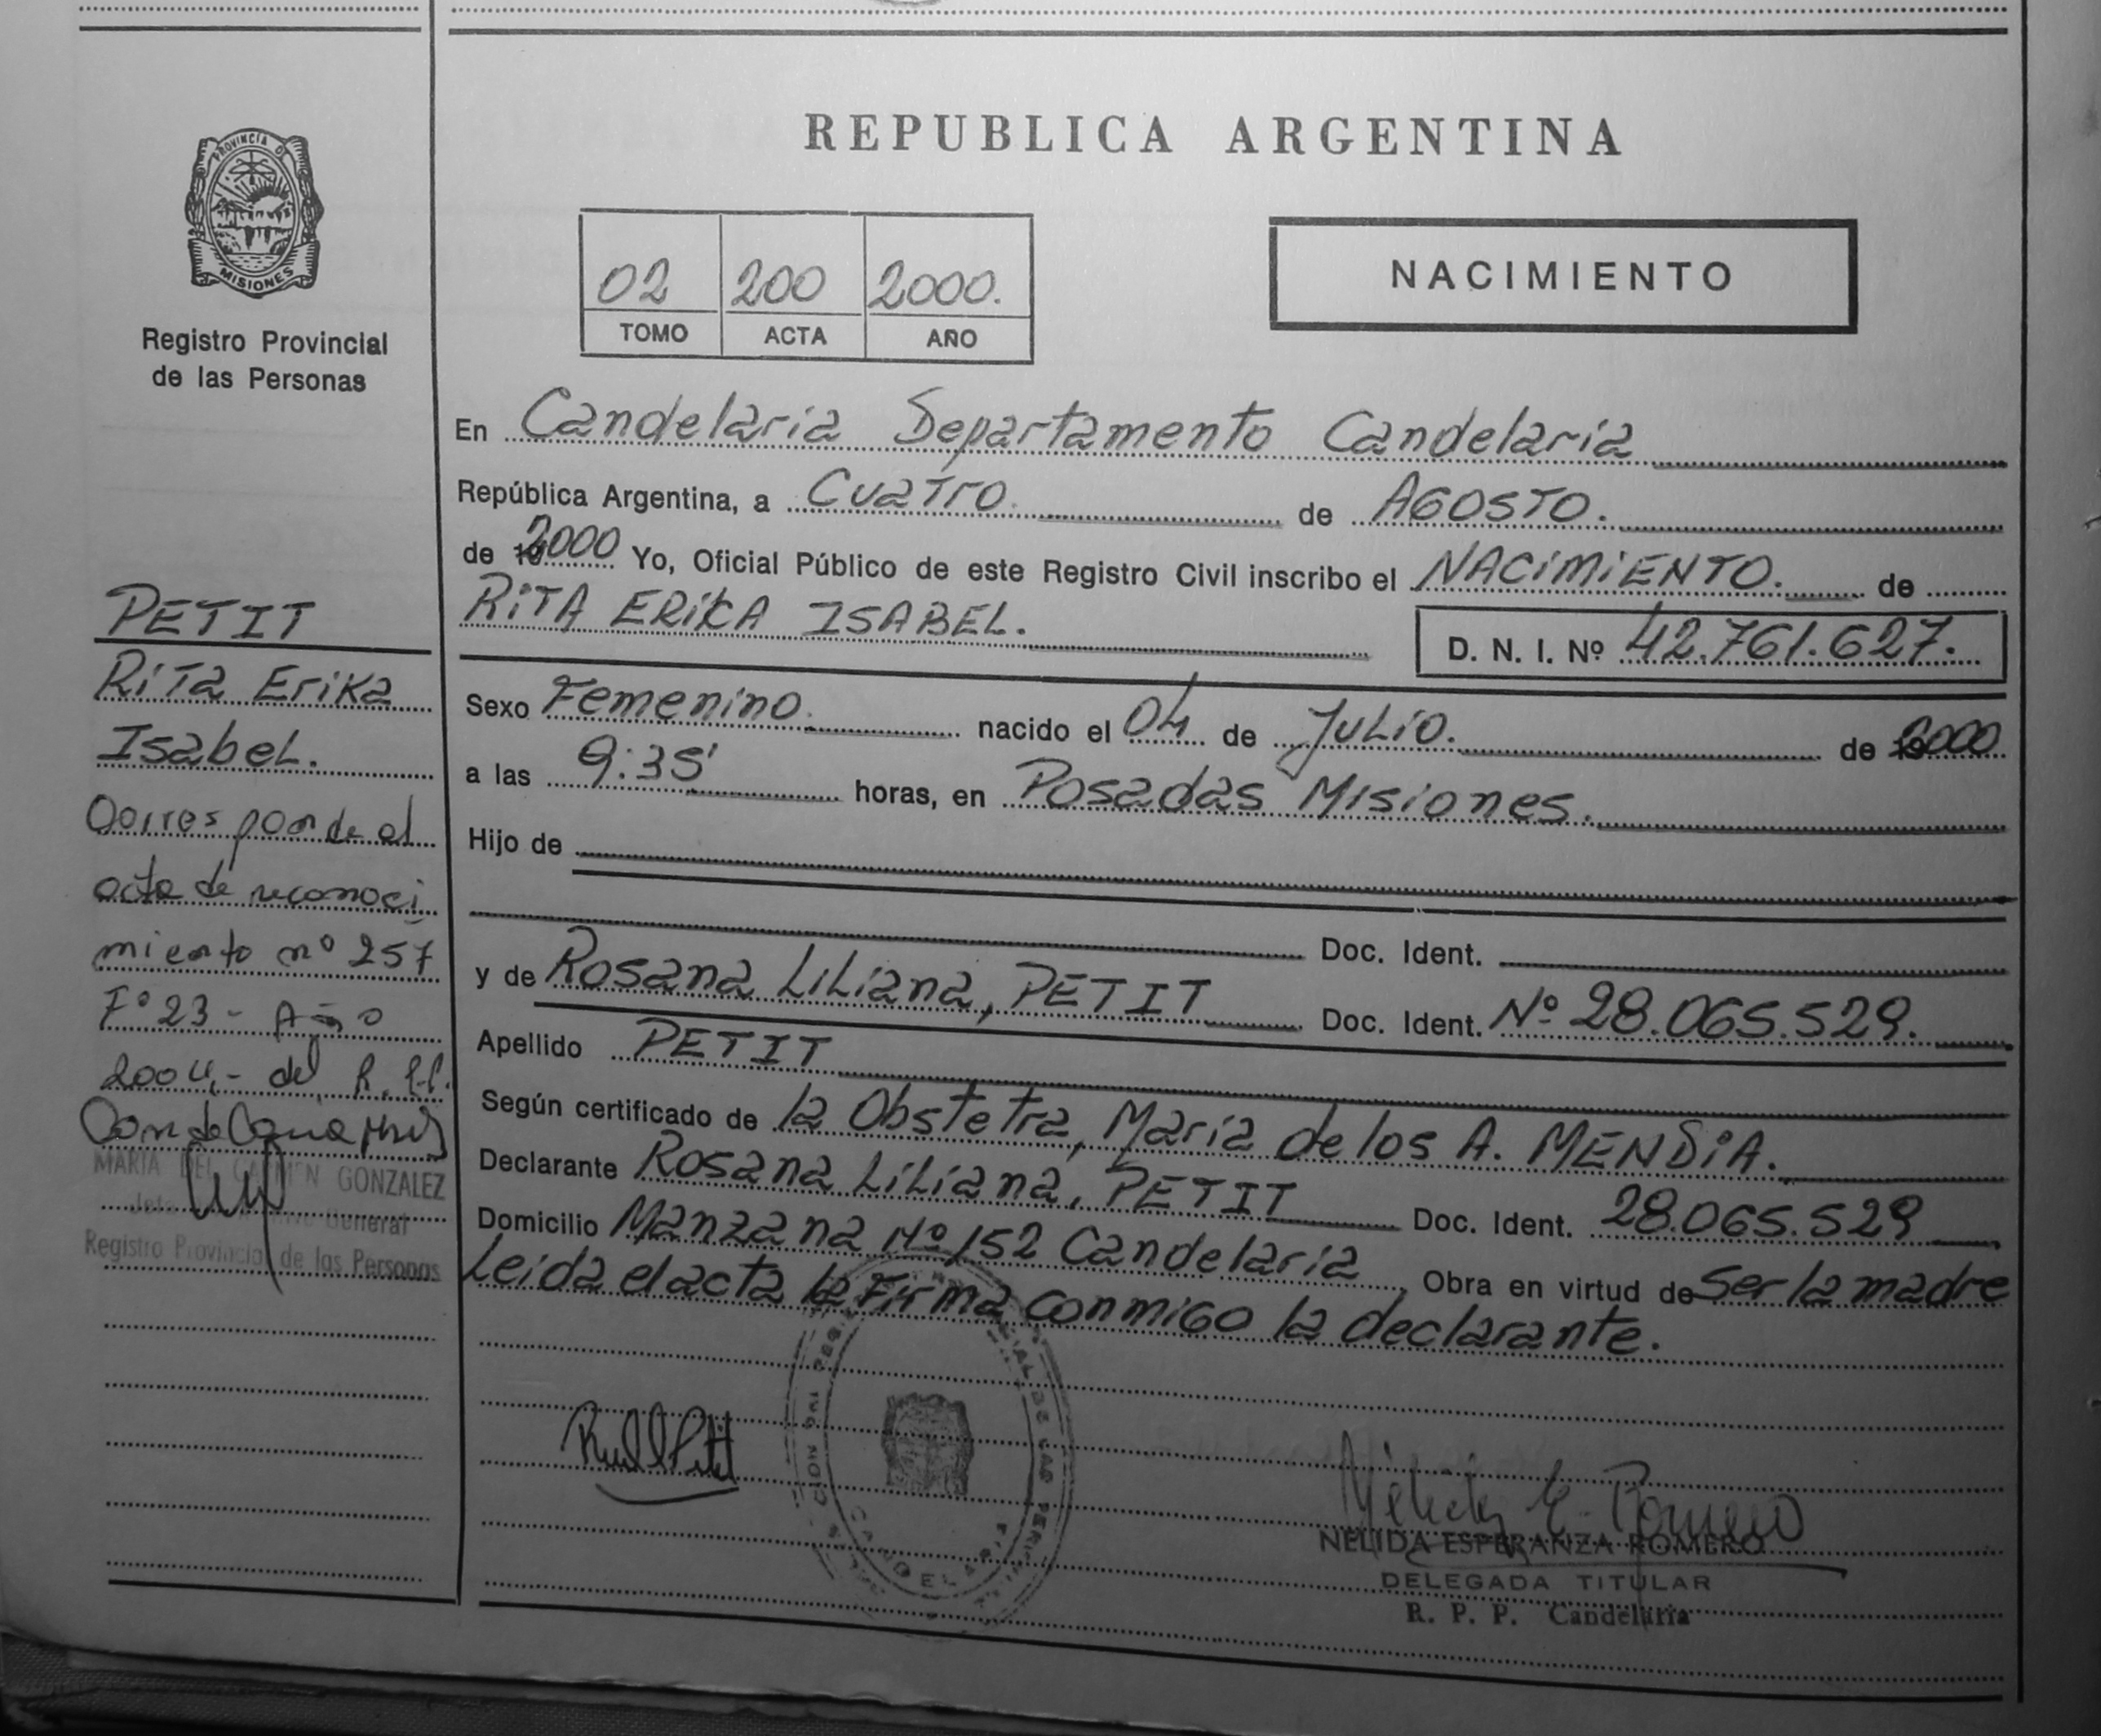 PROVINCIA DE
MISIONES
Registro Provincial
de las Personas
PETIT
Rita Erika
Isabel.
Corresponde al
acta de reconoci
miento nº 257
Fº 23 - Año
2004,- del R.
Candelaria Mnes
MARIA DEL CARMEN GONZALEZ
General
Registro Provincial de las Personas
REPUBLICA ARGENTINA
02 200 2000.
TOMO ACTA AÑO
NACIMIENTO
En Candelaria Departamento Candelaria
República Argentina, a Cuatro. de AGOSTO.
de 2000 Yo, Oficial Público de este Registro Civil inscribo el NACIMIENTO. de
RITA ERIKA ISABEL.
D. N. I. Nº 42.761.627.
Sexo Femenino. nacido el 04 de Julio. de 2000
a las 9:35' horas, en Posadas Misiones.
Hijo de
Doc. Ident.
y de Rosana Liliana, PETIT Doc. Ident. Nº 28.065.529.
Apellido PETIT
Según certificado de la Obstetra, Maria de los A. MENDIA.
Declarante Rosana Liliana, PETIT Doc. Ident. 28.065.529
Domicilio Manzana Nº 152 Candelaria Obra en virtud de Ser la madre
Leida el acta la Firma conmigo la declarante.
CANDELARIA
NELIDA ESPERANZA ROMERO
DELEGADA TITULAR
R. P. P. Candelaria